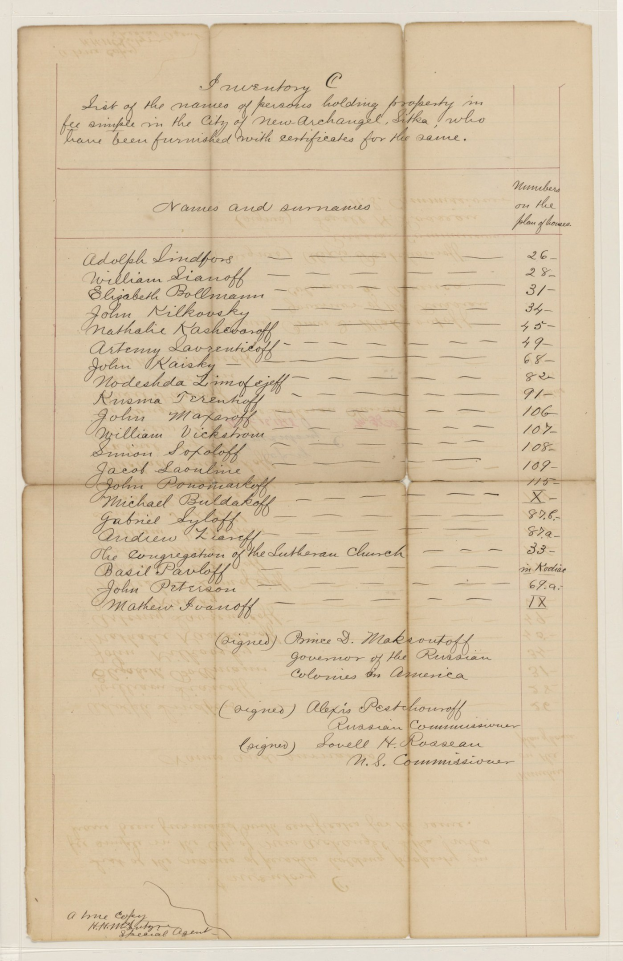 Inventory C
List of the names of persons holding property in
fee simple in the City of New Archangel, Sitka, who
have been furnished with certificates for the same.
Names and surnames
Numbers
on the
plan of houses
Adolph Lindfors 26
William Lianoff 28
Elizabeth Bollmann 31
John Kilkovsky 34
Nathalie Kashevaroff 45
Artemy Lavrenticoff 49
John Kaisky 68
Nodeshda Timofejeff 82
Kusma Terentioff 91
John Maxaroff 106
William Vickstrom 107
Simon Sopoloff 108
Jacob Laonline 109
John Ponomarkoff 115
Michael Buldakoff X
Gabriel Syloff 87.b.
Andrew 87.a
The Congregation of the Lutheran Church 33
Basil Pavloff in Kodiac
John Peterson 69.a.
Mathew Ivanoff IX
(signed) Prince D. Maksoutoff
Governor of the Russian
Colonies in America
(signed) Alexis Pestchouroff
Russian Commissioner
(signed) Lovell H. Rosseau
U.S. Commissioner
A true copy
Special Agent